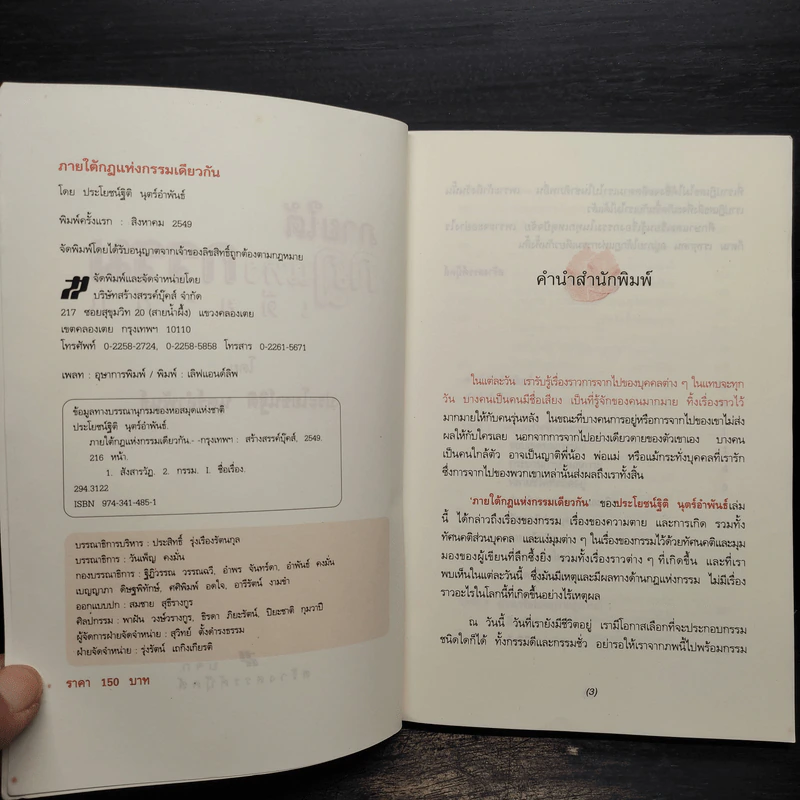 ภายใต้กฎแห่งกรรมเดียวกัน
โดย ประโยชน์ฐิติ นุตร์อำพันธ์
พิมพ์ครั้งแรก : สิงหาคม 2549
จัดพิมพ์โดยได้รับอนุญาตจากเจ้าของลิขสิทธิ์ถูกต้องตามกฎหมาย
จัดพิมพ์และจัดจำหน่ายโดย
บริษัทสร้างสรรค์บุ๊คส์ จำกัด
217 ซอยสุขุมวิท 20 (สายน้ำผึ้ง) แขวงคลองเตย
เขตคลองเตย กรุงเทพฯ 10110
โทรศัพท์ 0-2258-2724, 0-2258-5858 โทรสาร 0-2261-5671
เพลท : อุษาการพิมพ์ / พิมพ์ : เลิฟแอนด์ลิพ
ข้อมูลทางบรรณานุกรมของหอสมุดแห่งชาติ
ประโยชน์ฐิติ นุตร์อำพันธ์.
ภายใต้กฎแห่งกรรมเดียวกัน.- -กรุงเทพฯ : สร้างสรรค์บุ๊คส์, 2549.
216 หน้า.
1. สังสารวัฏ. 2. กรรม. I. ชื่อเรื่อง.
294.3122
ISBN 974-341-485-1
บรรณาธิการบริหาร : ประสิทธิ์ รุ่งเรืองรัตนกุล
บรรณาธิการ : วันเพ็ญ คงมั่น
กองบรรณาธิการ : ฐิฏิวรรณ วรรณลวี, อำพร จันทร์ดา, อำพันธ์ คงมั่น
เบญญาภา ดิษฐพิทักษ์, ศศิพิมพ์ อดใจ, อารีรัตน์ งามขำ
ออกแบบปก : สมชาย สุธีรางกูร
ศิลปกรรม : พาฝัน วงษ์วรางกูร, ธิรดา ภิยะรัตน์, ปิยะชาติ กุมวาปี
ผู้จัดการฝ่ายจัดจำหน่าย : สุวิทย์ ตั้งดำรงธรรม
ฝ่ายจัดจำหน่าย : รุ่งรัตน์ เถกิงเกียรติ
ราคา 150 บาท
คำนำสำนักพิมพ์
ในแต่ละวัน เรารับรู้เรื่องราวการจากไปของบุคคลต่าง ๆ ในแทบจะทุก
วัน บางคนเป็นคนมีชื่อเสียง เป็นที่รู้จักของคนมากมาย ทิ้งเรื่องราวไว้
มากมายให้กับคนรุ่นหลัง ในขณะที่บางคนการอยู่หรือการจากไปของเขาไม่ส่ง
ผลให้กับใครเลย นอกจากการจากไปอย่างเดียวดายของตัวเขาเอง บางคน
เป็นคนใกล้ตัว อาจเป็นญาติพี่น้อง พ่อแม่ หรือแม้กระทั่งบุคคลที่เรารัก
ซึ่งการจากไปของพวกเขาเหล่านั้นส่งผลถึงเราทั้งสิ้น
'ภายใต้กฎแห่งกรรมเดียวกัน' ของประโยชน์ฐิติ นุตร์อำพันธ์เล่ม
นี้ ได้กล่าวถึงเรื่องของกรรม เรื่องของความตาย และการเกิด รวมทั้ง
ทัศนคติส่วนบุคคล และแง่มุมต่าง ๆ ในเรื่องของกรรมไว้ด้วยทัศนคติและมุม
มองของผู้เขียนที่ลึกซึ้งยิ่ง รวมทั้งเรื่องราวต่าง ๆ ที่เกิดขึ้น และที่เรา
พบเห็นในแต่ละวันนี้ ซึ่งมันมีเหตุและมีผลทางด้านกฎแห่งกรรม ไม่มีเรื่อง
ราวอะไรในโลกนี้ที่เกิดขึ้นอย่างไร้เหตุผล
ณ วันนี้ วันที่เรายังมีชีวิตอยู่ เรามีโอกาสเลือกที่จะประกอบกรรม
ชนิดใดก็ได้ ทั้งกรรมดีและกรรมชั่ว อย่ารอให้เราจากภพนี้ไปพร้อมกรรม
(3)